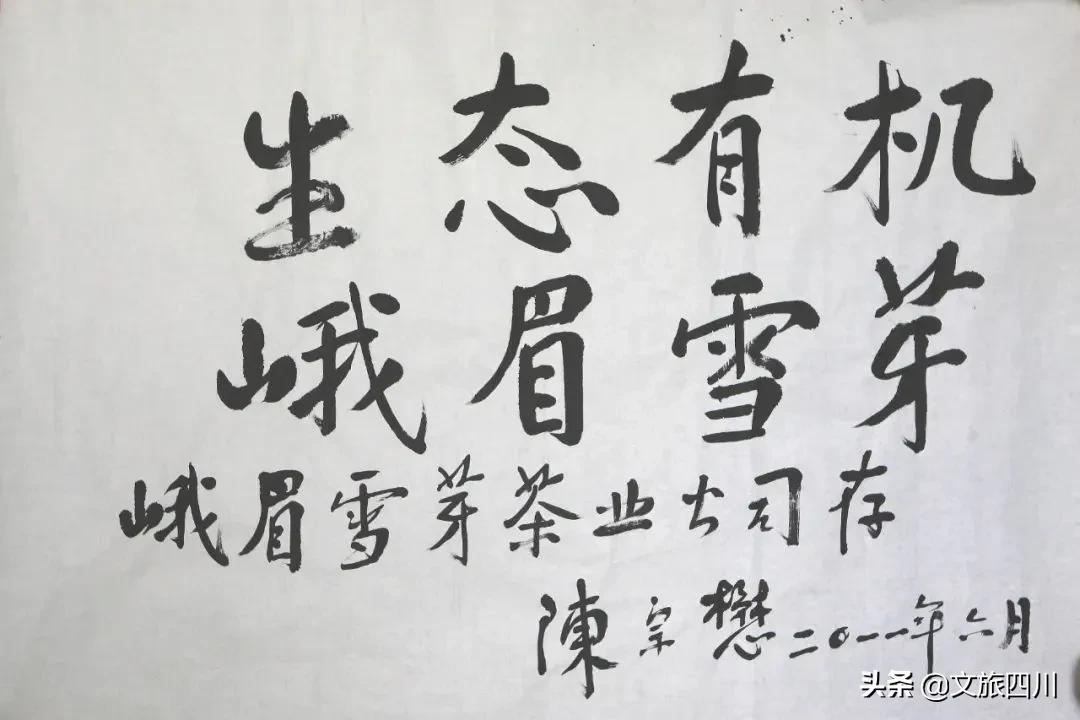 生态有机
峨眉雪芽
峨眉雪芽茶业公司存
陳宗懋二〇一一年六月
头条@文旅四川